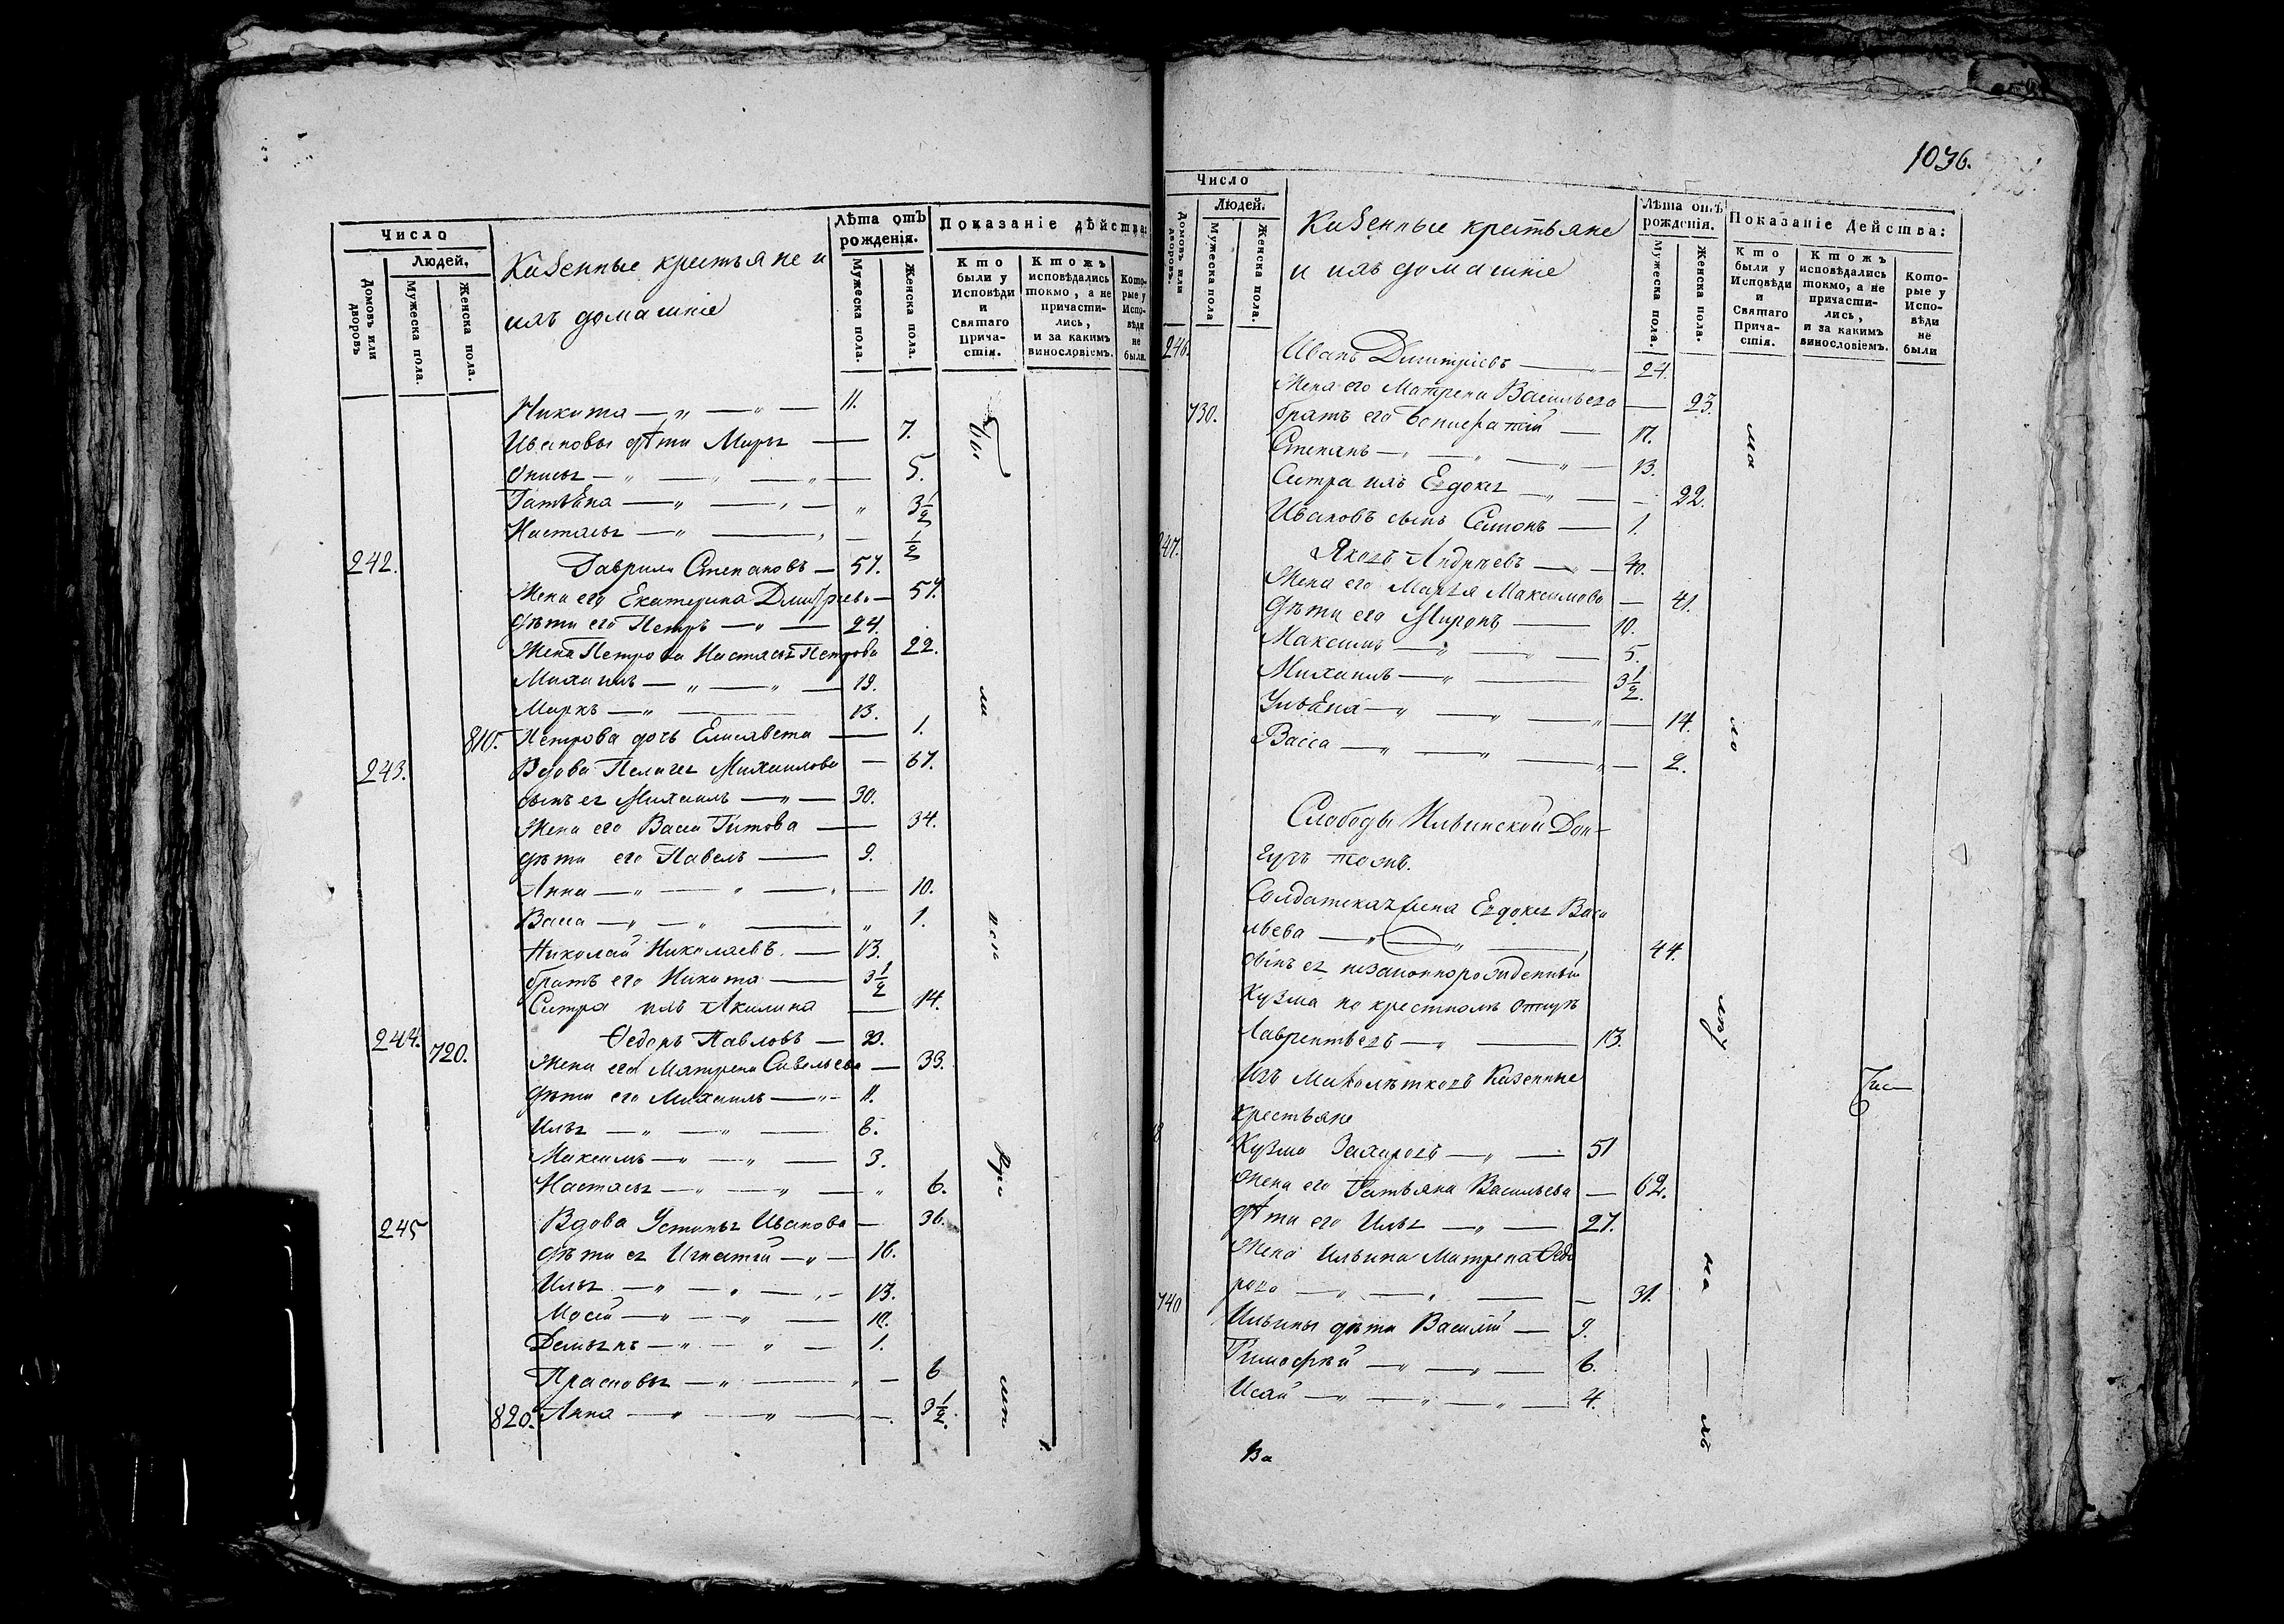 Число
Людей,
Домовъ или дворовъ
Мужеска пола.
Женска пола.
Казенные крестьяне и
ихъ домашніе
Лѣта отъ рожденія.
Мужеска пола.
Женска пола.
Показаніе дѣйства:
Кто были у Исповѣди и Святаго Прича-стія.
Ктожъ исповѣдались токмо, а не причасти-лись, и за какимъ винословіемъ.
Кото-рые у Испо-вѣди не были.
Никита — „ — „ — 11.
Ивановы дѣти Марѳа — 7.
— „ — „ — „ — 5.
Татьяна — „ — „ — „ 3 1/2
Настасья — „ — „ — 1/2
242. Гаврила Степановъ — 57.
Жена его Екатерина Дмитріева — 57.
Дѣти его Петръ — „ — 24.
Жена Петрова Настасья Петрова 22.
Михаилъ — „ — „ — 19.
Маркъ — „ — 13.
810. Петрова дочь Елисавета — 1.
243. Вдова Пелагея Михаилова — 67.
сынъ ея Михаилъ — „ — 30.
Жена его Васса Титова — 34.
дѣти его Павелъ — 9.
Анна — „ — „ — „ — 10.
Васса — „ — „ — „ 1.
Николай Николаевъ. — 13.
братъ его Никита — 3 1/2
Сестра ихъ Акилина — 14.
244. 720. Ѳедоръ Павловъ — 30.
Жена его Матрена Савельева — 33.
Дѣти его Михаилъ — „ — 11.
Илья — „ — „ — 8.
Максимъ — „ — „ — 3.
Настасья — „ — „ — „ 6.
245 Вдова Устинья Иванова — 36.
Дѣти ея Игнатій — „ — 16.
Илья — „ — „ — „ — 13.
Мосей — „ — „ — 10.
Демьянъ — „ — „ — 1.
Прасковья — „ — „ — 6
820. Анна — „ — „ — „ — 3 1/2.
1036.
Число
Людей.
Домовъ или дворовъ.
Мужеска пола
Женска пола.
Казенные крестьяне
и ихъ домашніе
Лѣта отъ рожденія.
Мужеска пола.
Женска пола.
Показаніе Действа:
Кто были у Исповѣди и Святаго Прича-стія.
Ктожъ исповѣдались токмо, а не причасти-лись, и за какимъ винословіемъ.
Кото-рые у Испо-вѣди не были
246. Иванъ Дмитріевъ — 24.
Жена его Матрена Васильева — 23.
730. братъ его — 17.
Степанъ — „ — „ — „ — 13.
Сестра ихъ Евдокея — „ — 22.
Ивановъ сынъ — 1.
247. Яковъ Андреевъ — „ — 40.
Жена его Марья Максимова — 41.
Дѣти его Миронъ — 10.
Максимъ — „ — „ — 5.
Михаилъ — „ — 3 1/2.
Ульяна — „ — „ — „ — 14.
Васса — „ — „ — „ — 2.
Слободы Ильинской
Солдатская жена Евдокея Васи
льева — „ — „ — 44.
сынъ ея незаконнорожденный
Кузма по крестномъ отцѣ
Лаврентьевъ — „ — 13.
Казенные
крестьяне
Кузма Захаровъ — „ — 51
Жена его Татьяна Васильева — 62.
Дѣти его Илья — „ — 27.
Жена Ильина Матрена Ѳедо
рова — „ — „ — 31.
740 Ильины дѣти Василій — 9.
Тимоѳей — „ — „ — 6.
Исай — „ — „ — „ — 4.
Ва